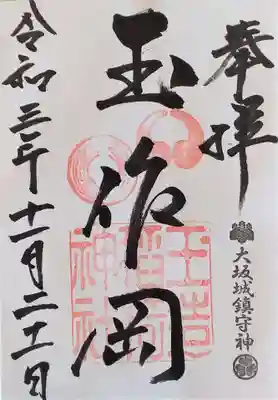 奉拝
大坂城鎮守神
玉作岡
玉造稲荷神社
令和三年十一月二十二日